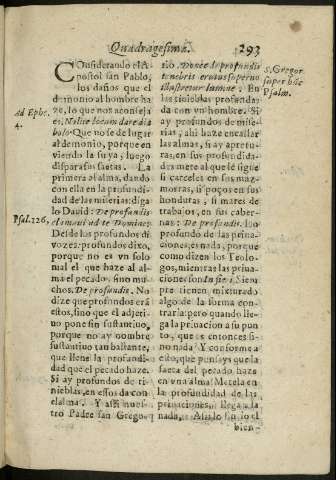 Quadragesima.
293
COnsiderando el A-
postol san Pablo,
los daños que el
demonio al hombre ha-
ze, lo que nos aconseja
es: Nolite locum dare dia
bolo: Que no se de lugar
al demonio, porque en
viendo la suya, luego
dispara sus saetas. La
primera al alma, dando
con ella en la profundi-
dad de las miserias: diga
lo David: De profundis
clamavi ad te Domine:
Desde los profundos di
vozes: profundos dixo,
porque no es vn solo
mal el que haze al al-
ma el pecado, sino mu-
chos. De profundis. No
dize que profundos erã
estos, sino que el adjeti-
uo pone sin sustantiuo,
porque no ay nombre
sustantiuo tan bastante,
que llene la profundi-
dad que el pecado haze.
Si ay profundos de ti-
nieblas, en essos da con
el alma. Y assi nues-
tro Padre san Grego-
ad Ephe.
4.
Psal. 126.
rio. Donec de profundis
tenebris erutus superno
illustretur lumine: En
tinieblas profundas da
con vn hombre. Si
ay profundos de mise-
rias, ahi haze encallar
las almas, si ay aprietu-
ras, en sus profundida-
des mete al que le sigue
si carceles en sus maz-
morras, si poços en sus
honduras, si mares de
trabajos, en sus caber-
nas: De profundis. Lo
profundo de las priua-
ciones, es nada, porque
como dizen los Teolo-
gos, mientras las priua-
ciones son In fieri, siem
pre tienen mixturado
algo de la forma con-
traria: pero quando lle-
ga la priuacion a su pun
to, que es entonces si-
no nada. Y conforme a
esto, que pensays que la
saeta del pecado haze
en vna alma? Metela en
la profundidad de las
priuaciones, llega a la
nada,
bien-
S. Gregor.
super hũc
Psalm.